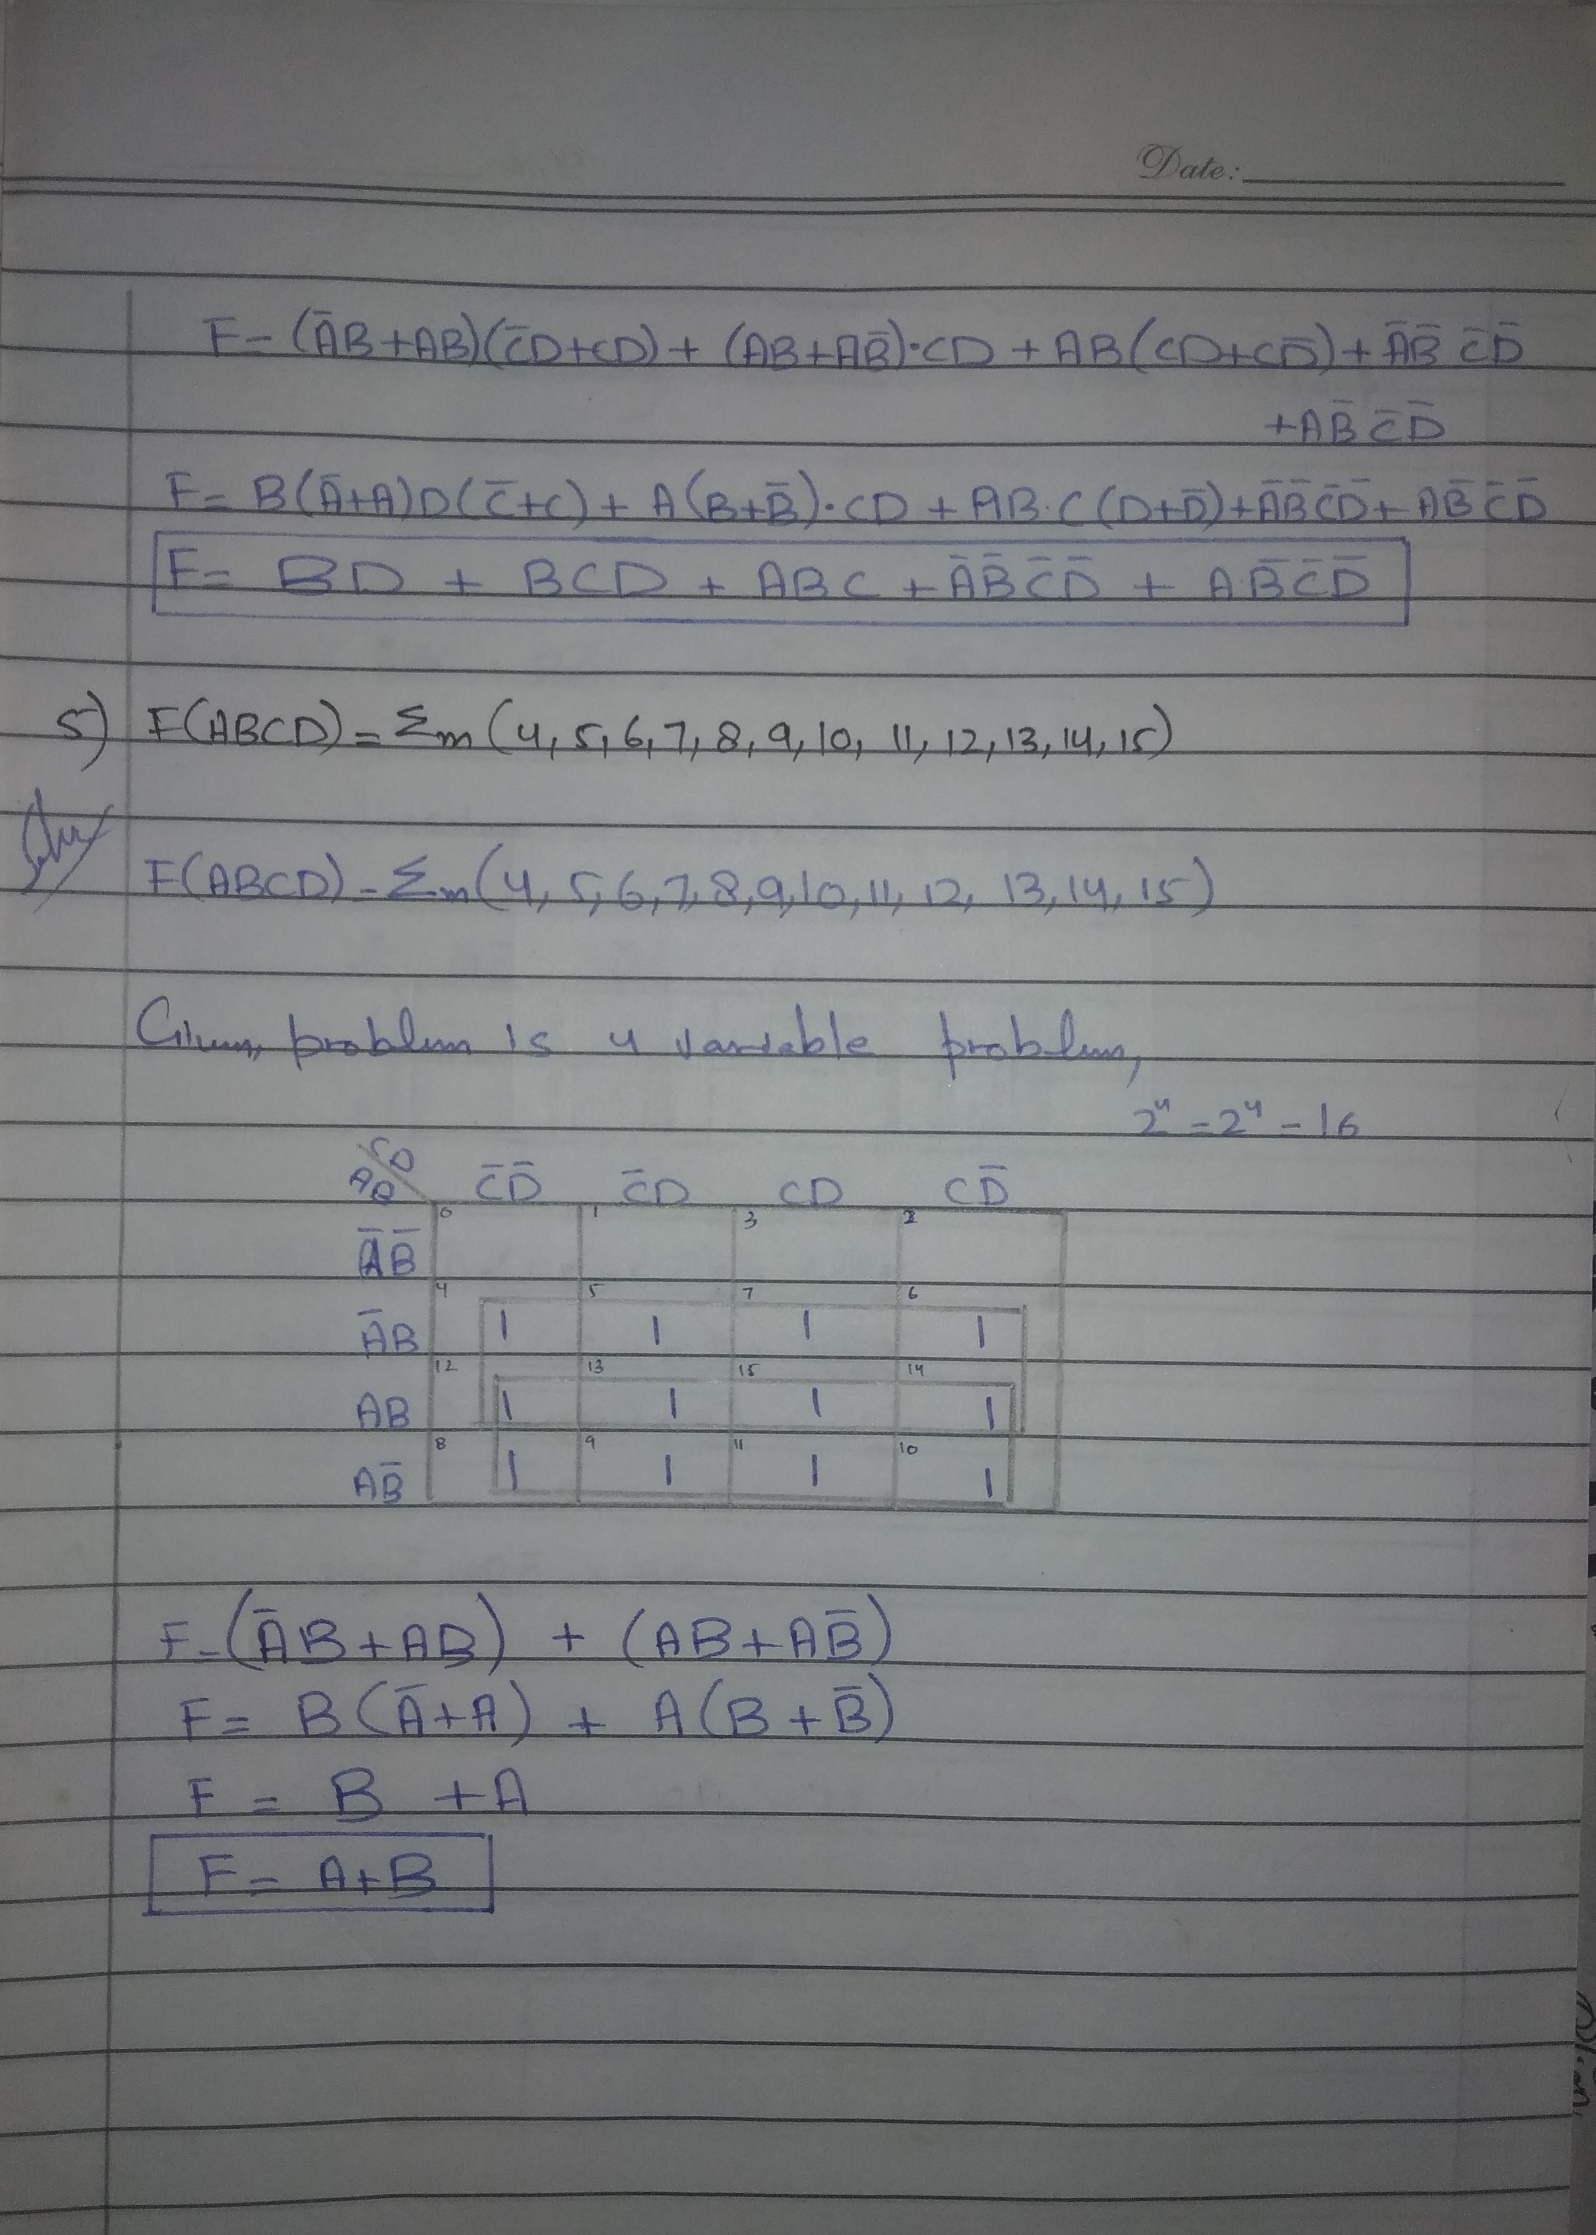 Date:
F = (A̅B+AB)(C̅D+CD) + (AB+AB̅)·CD + AB(CD+CD̅) + A̅B̅ C̅D̅
+AB̅ C̅D̅
F = B(A̅+A)D(C̅+C) + A(B+B̅)·CD + AB·C(D+D̅) + A̅B̅C̅D̅ + AB̅ C̅D̅
F = BD + BCD + ABC + A̅B̅C̅D̅ + A·B̅C̅D̅
5) F(ABCD) = Σm (4, 5, 6, 7, 8, 9, 10, 11, 12, 13, 14, 15)
F(ABCD) = Σm (4, 5, 6, 7, 8, 9, 10, 11, 12, 13, 14, 15)
Given problem is 4 variable problem,
2⁴ = 2⁴ = 16
CD
AB C̅D̅ C̅D CD CD̅
0 1 3 2
A̅B̅
4 5 7 6
A̅B 1 1 1 1
12 13 15 14
AB 1 1 1 1
8 9 11 10
AB̅ 1 1 1 1
F = (A̅B+AB) + (AB+AB̅)
F = B(A̅+A) + A(B+B̅)
F = B + A
F = A+B